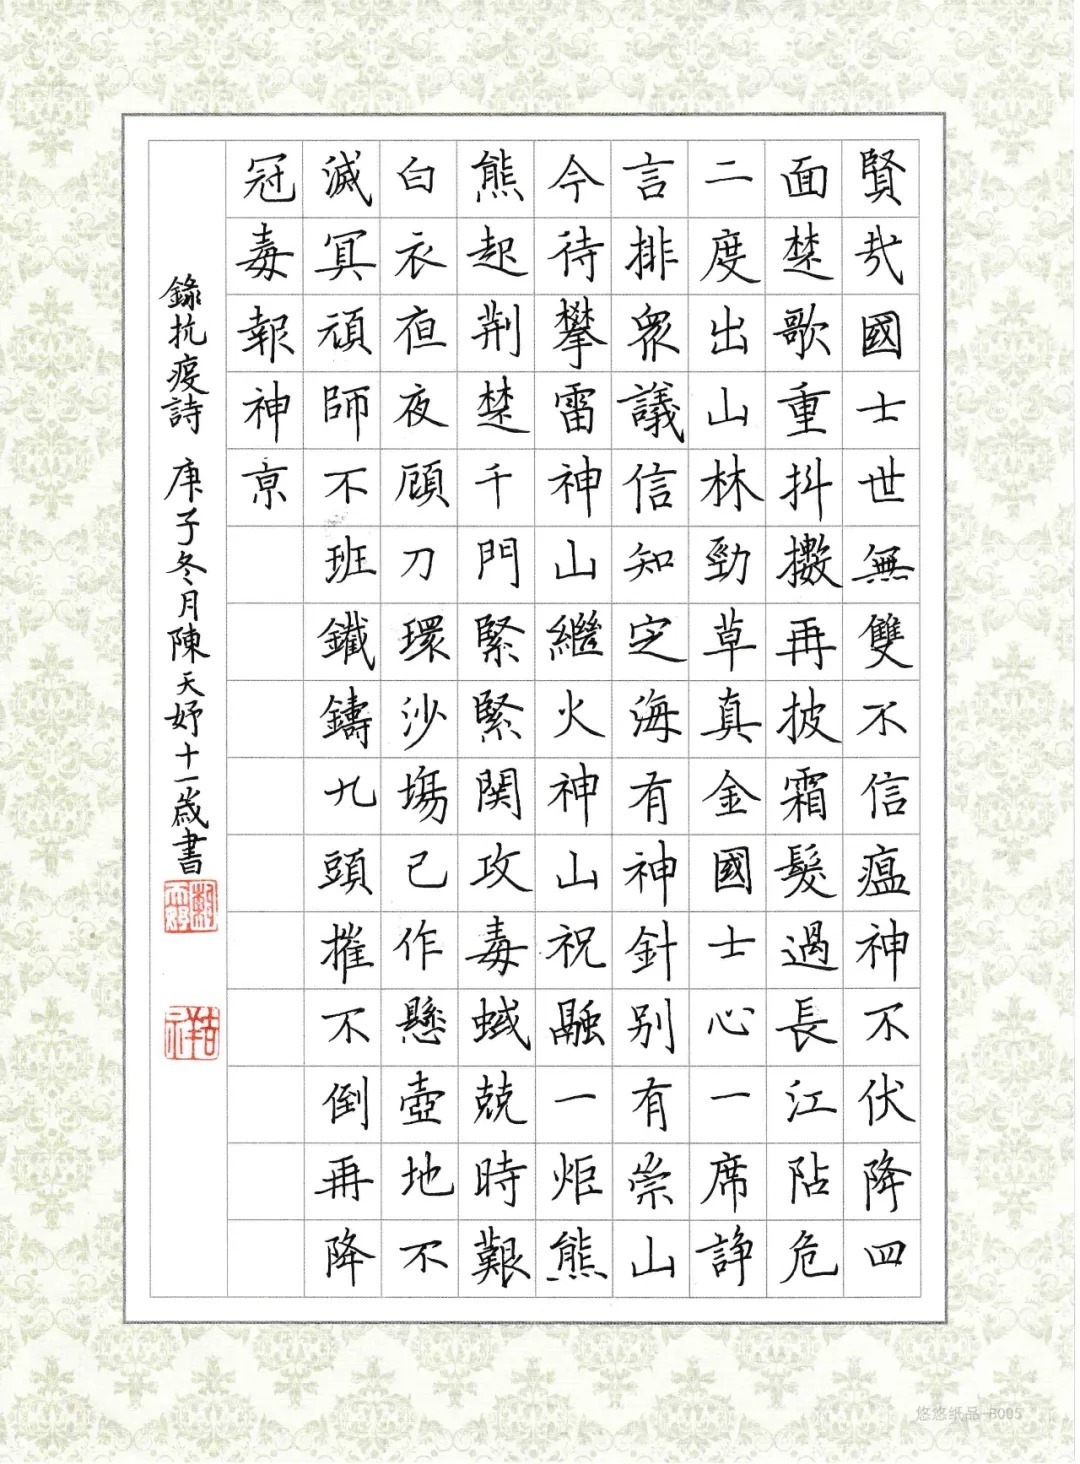 賢哉國士世無雙不信瘟神不伏降四
面楚歌重抖擻再披霜髮過長江阽危
二度出山林勁草真金國士心一席諍
言排衆議信知定海有神針別有崇山
今待攀雷神山繼火神山祝融一炬熊
熊起荆楚千門緊緊関攻毒蜮兢時艱
白衣夜顧刀環沙場已作懸壺地不
滅冥頑師不班鐵鑄九頭摧不倒再降
冠毒報神亰
錄抗疫詩 庚子冬月陳天妤十一歲書
吉祥
悠悠纸品-B005